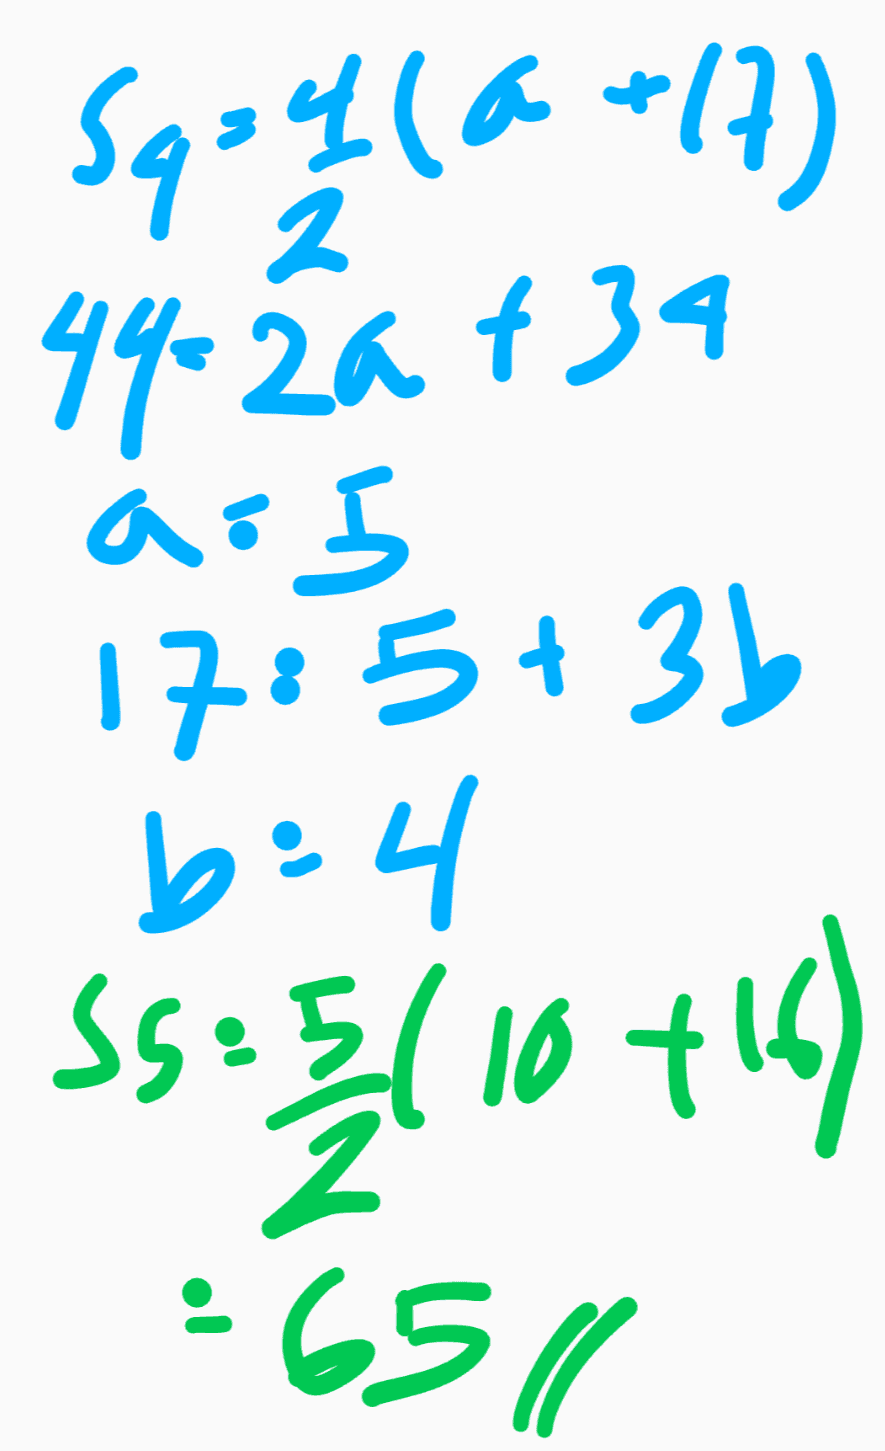 S4 = 4/2 (a + 17)
44 = 2a + 34
a = 5
17 = 5 + 3b
b = 4
S5 = 5/2 (10 + 16)
= 65 //